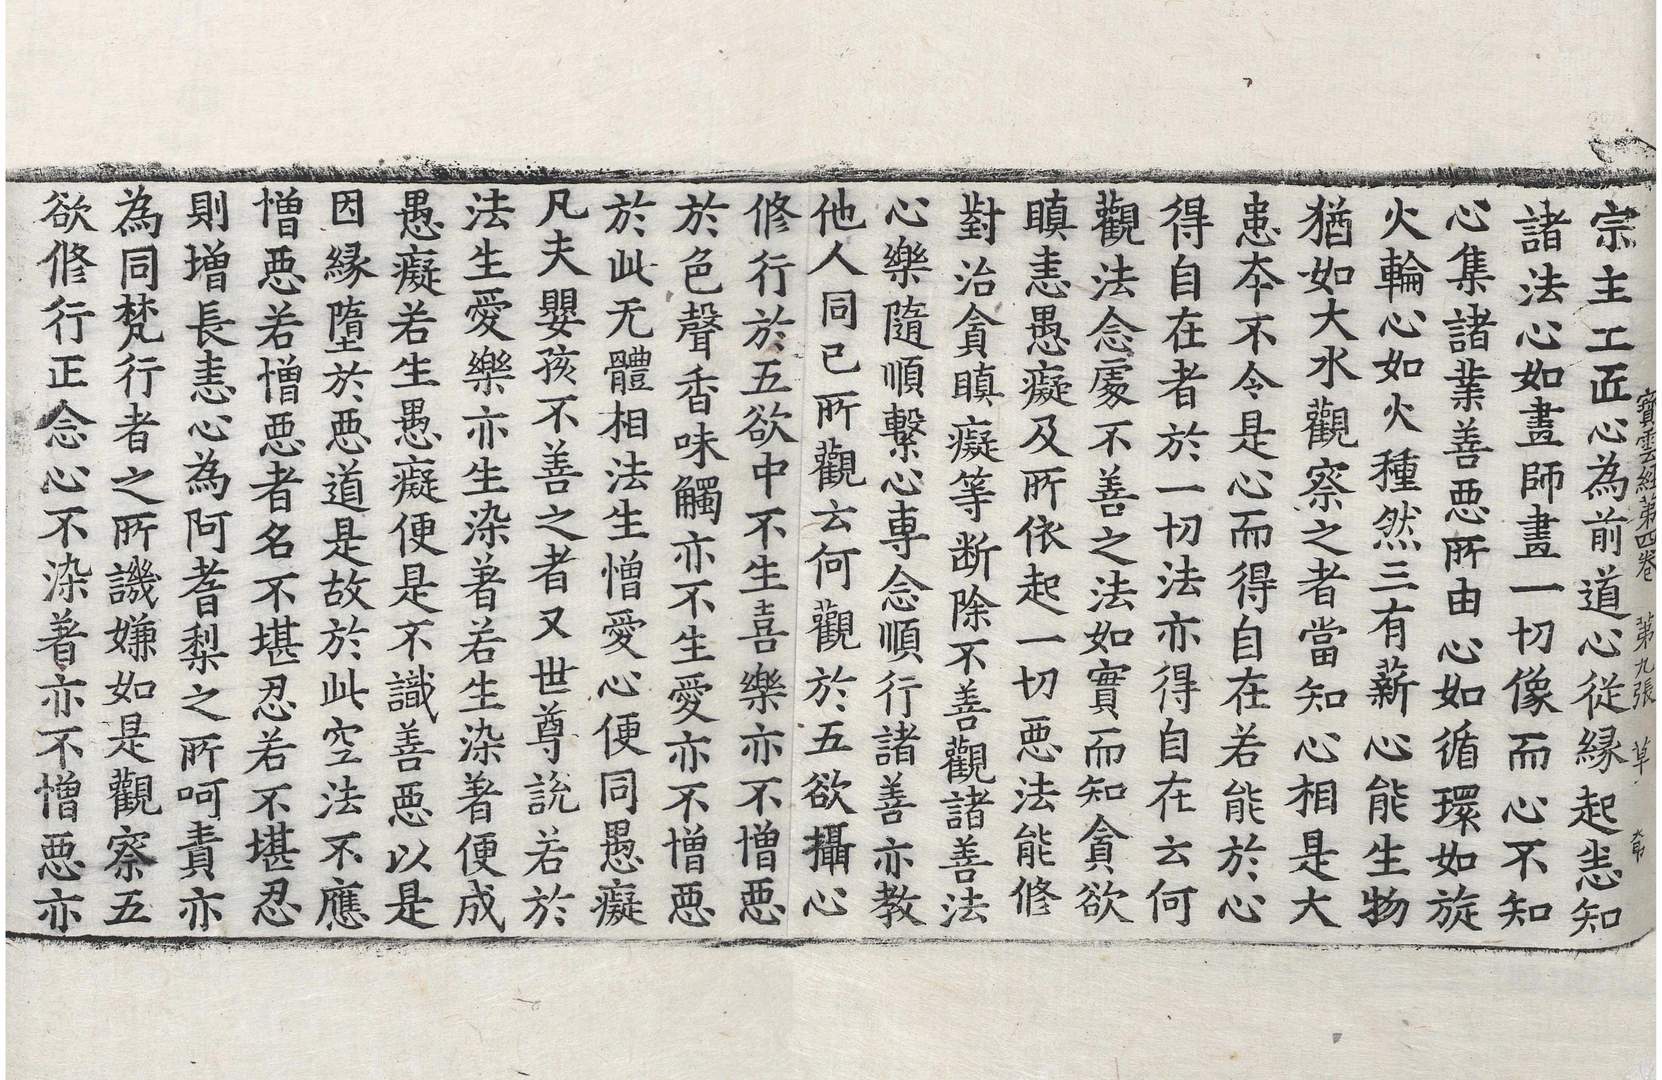 寶雲経苐四巻　苐九張　草
宗主工匠心為前道心従縁起恚知
諸法心如畫師畫一切像而心不知
心集諸業善惡所由心如循環如旋
火輪心如火種然三有薪心能生物
猶如大水觀察之者當知心相是大
患本不令是心而得自在若能於心
得自在者於一切法亦得自在云何
觀法念處不善之法如實而知貪欲
瞋恚愚癡及所依起一切惡法能修
對治貪瞋癡等断除不善觀諸善法
心樂隨順繫心専念順行諸善亦教
他人同已所觀云何觀於五欲攝心
修行於五欲中不生喜樂亦不憎惡
於色聲香味觸亦不生愛亦不憎惡
於此无體相法生憎愛心便同愚癡
凡夫嬰孩不善之者又世尊說若於
法生愛樂亦生染著若生染著便成
愚癡若生愚癡便是不識善惡以是
因縁墮於惡道是故於此空法不應
憎惡若憎惡者名不堪忍若不堪忍
則増長恚心為阿耆梨之所呵責亦
為同梵行者之所譏嫌如是觀察五
欲修行正念心不染著亦不憎惡亦